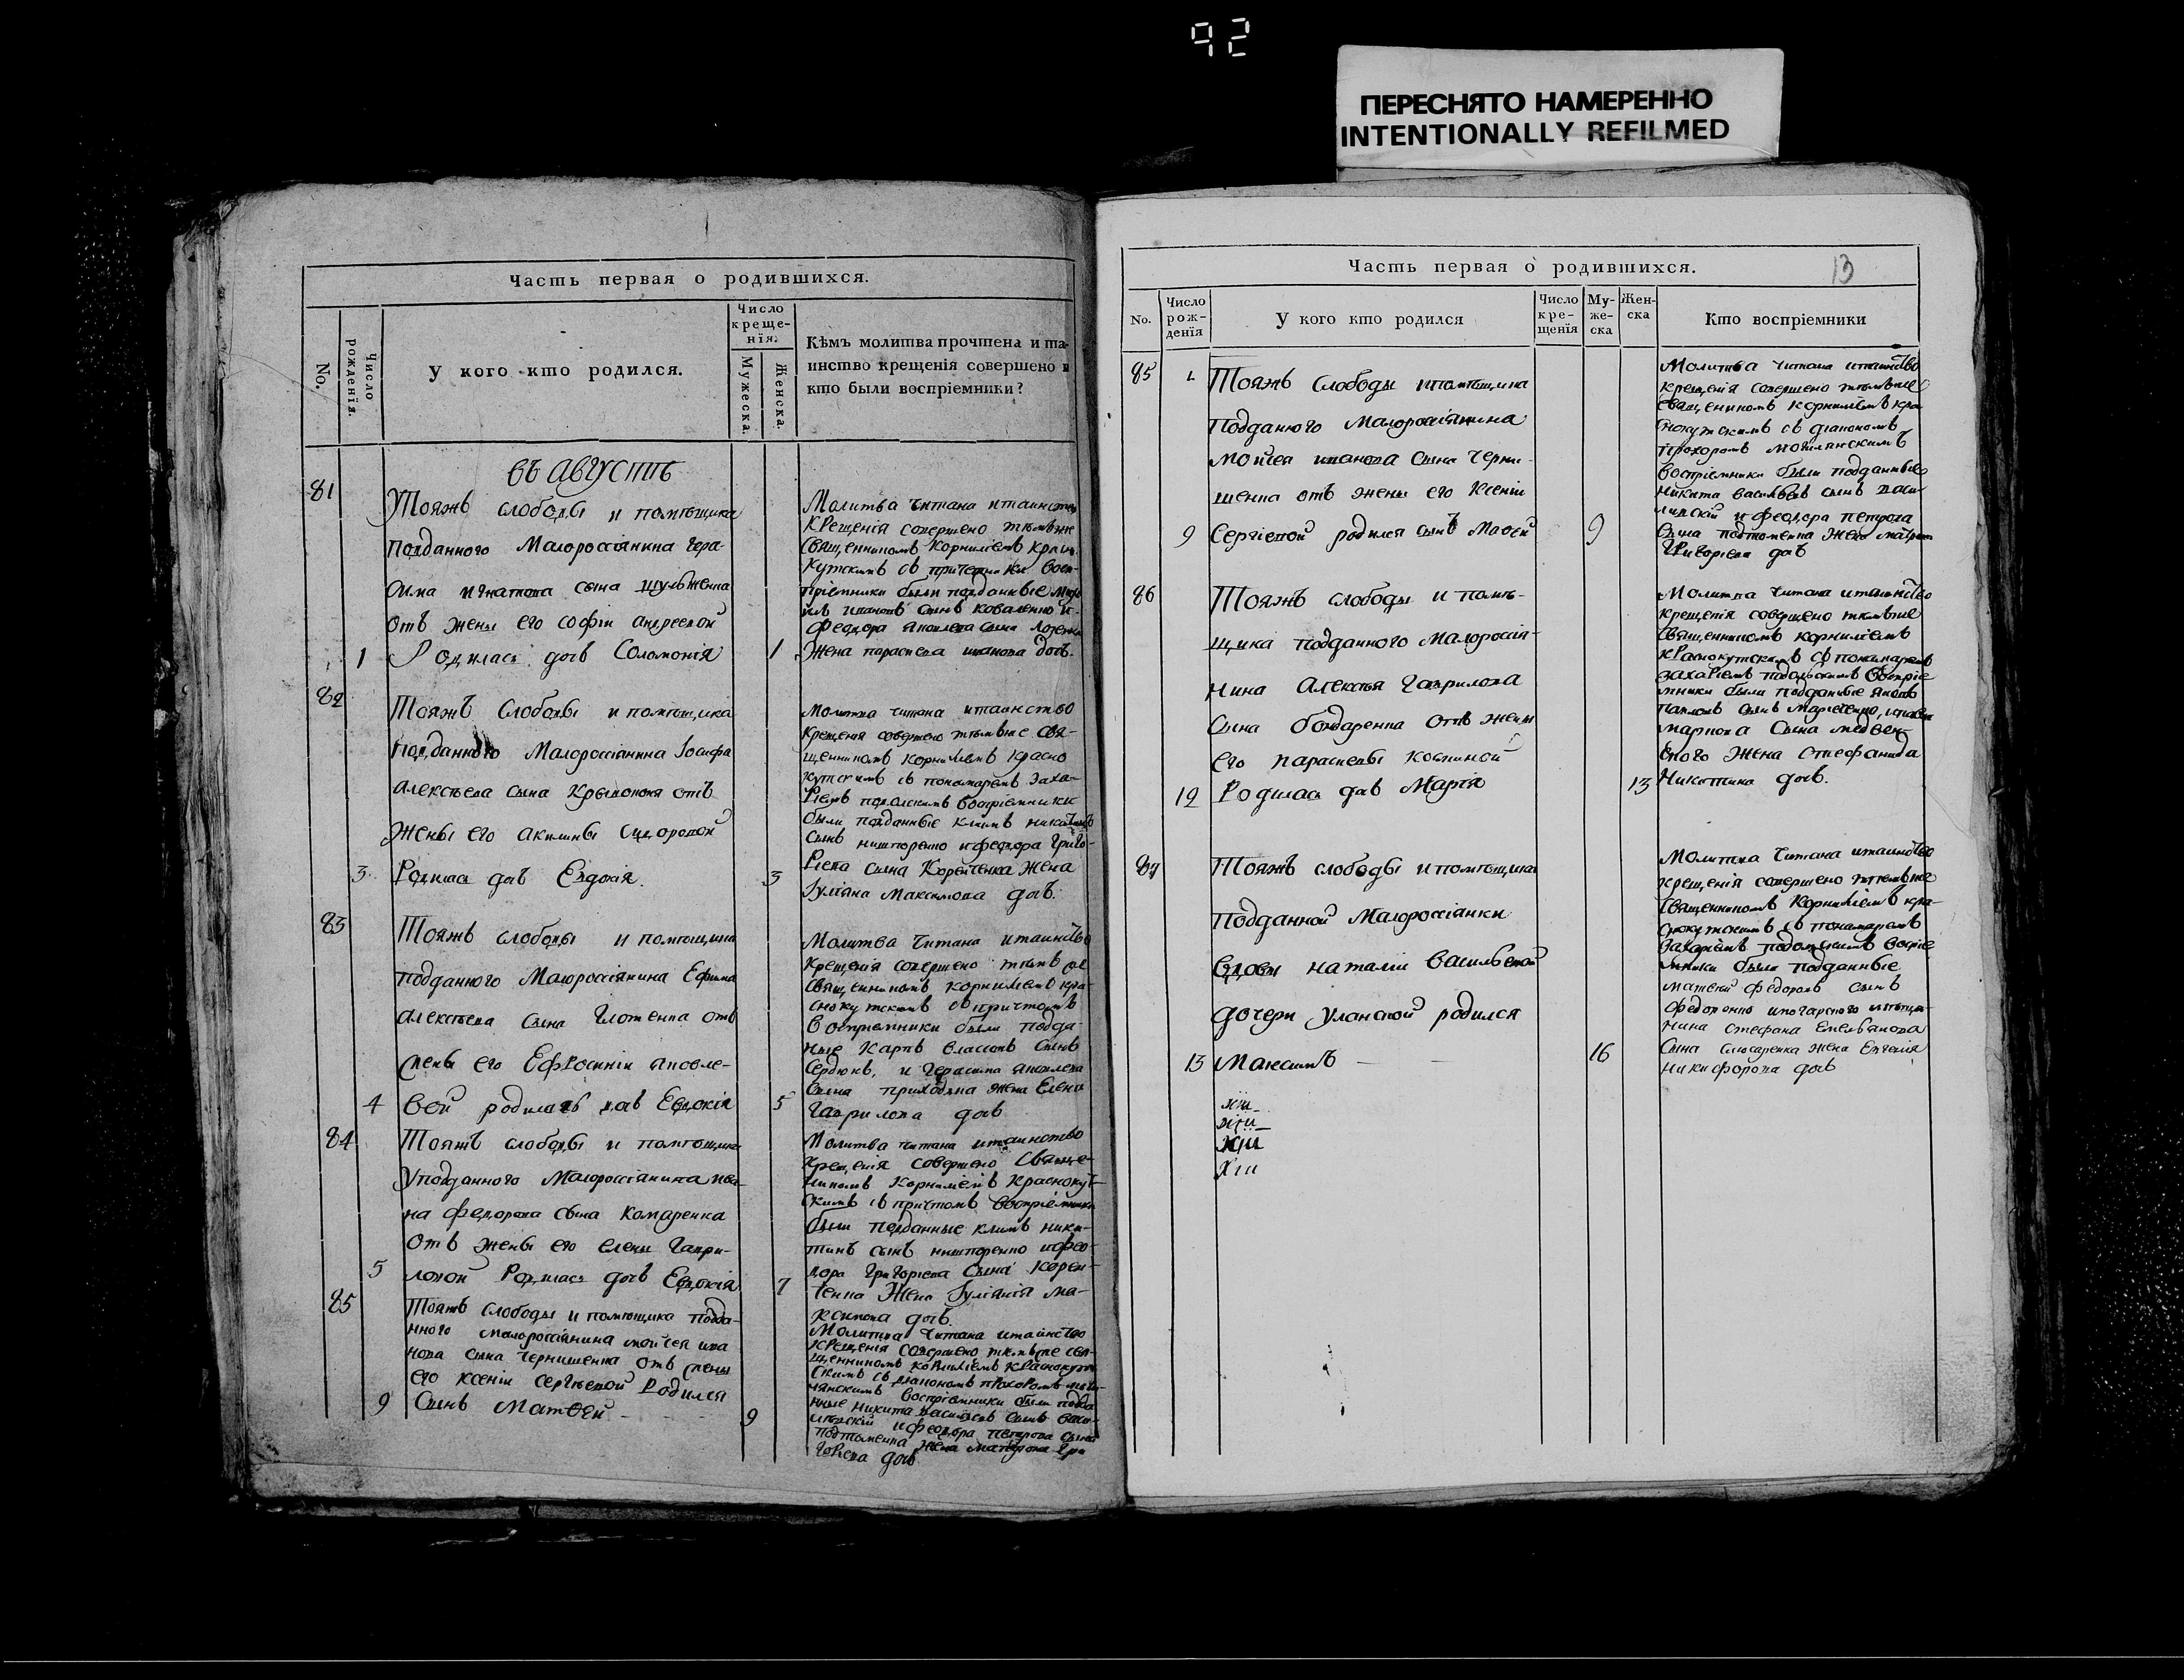 92
ПЕРЕСНЯТО НАМЕРЕННО
INTENTIONALLY REFILMED
Часть первая о родившихся.
No.
Число рожденія.
У кого кто родился.
Число
креще-
нія.
Мужеска.
Женска.
Кѣмъ молитва прочтена и та-
инство крещенія совершено и
кто были воспріемники?
въ августѣ
81
Тояжъ слободы и помѣщика
подданного Малороссіянина Гера-
сима Игнатова сына Шульженка
отъ жены его Софіи Андреевой
1 Родилась дочь Соломонія 1
Молитва читана и таинство
крещенія совершено тѣмъже
священникомъ Корниліемъ Красно
кутскимъ съ причетники воспріемники были подданные
Ивановъ сынъ Коваленко и
Феодора Яковлева сына
жена параскева иванова дочь.
82
Тояжъ слободы и помѣщика
подданного Малороссіянина Іосифа
Алексѣева сына Кривоноса отъ
жены его акилины сидоровой
3 Родилась дочь Евдокія. 3
Молитва читана и таинство
крещенія совершено тѣмъже свя-
щенникомъ корниліемъ красно
кутскимъ съ пономаремъ заха-
ріемъ подолскимъ воспріемники
были подданные климъ никитинъ
сынъ нишпоренко и феодора григо-
ріева сына Корейченка жена
Іуліана Максимова дочь.
83
Тояжъ слободы и помѣщика
подданного Малороссіянина Ефима
алексѣева сына Глотенка отъ
жены его Ефросиніи яковле-
4 вой родилась дочь Евдокія 5
Молитва читана и таинство
крещенія совершено тѣмъ же
священникомъ корниліемъ кра-
снокутскимъ съ причтомъ
воспріемники были подда-
ные Карпъ Власовъ сынъ
Сердюкъ, и Герасима яковлева
сына приходька жена Елена
Гаврилова дочь
84
Тояжъ слободы и помѣщика
Уподданного Малороссіянина ива-
на федорова сына Комаренка
отъ жены его елены Гаври-
5 ловой Родилась дочь Евдокія 7
Молитва читана и таинство
крещенія совершено Священ-
никомъ Корниліемъ Краснокут-
скимъ съ причтомъ воспріемники
были подданные климъ ники-
тинъ сынъ нишпоренко и фео-
дора григоріева сына Корей-
ченка жена Іуліанія ма-
ксимова дочь.
85
Тояжъ слободы и помѣщика подда-
нного малороссіянина мойсея ива
нова сына чернишенка отъ жены
его ксеніи сергѣевой Родился
9 Сынъ Матѳей 9
Молитва читана и таинство
крещенія совершено тѣмъже свя-
щенникомъ корниліемъ краснокут
скимъ съ діакономъ прохоромъ моги-
лянскимъ воспріемники были подда
нные никита васильевъ сынъ васи-
левскій и феодора петрова сына
жена матрона гри
горіева дочь
Часть первая о родившихся.
13
No.
Число
рож-
денія
У кого кто родился
Число
кре-
щенія
Му-
же-
ска
Жен-
ска
Кто воспріемники
85
Тояжъ слободы и помѣщика
Подданого Малороссіянина
мойсея иванова сына Черни-
шенка отъ жены его Ксеніи
9 Сергіевой родился сынъ Маѳей 9
Молитва читана и таинство
крещенія совершено тѣмъже
священикомъ корниліемъ кра
снокутскимъ съ діакономъ
прохоромъ могилянскимъ
воспріемники были подданные
никита васильевъ сынъ васи-
левскій и феодора петрова
сына жена матрона
григоріева дочь
86
Тояжъ слободы и помѣ-
щика подданного Малороссія-
нина Алексѣя Гаврилова
Сына бондаренка отъ жены
его параскевы косминой
12 Родилась дочь Марія 13
Молитва читана и таинство
крещенія совершено тѣмъже
священникомъ корниліемъ
краснокутскимъ съ пономаремъ
захаріемъ подольскимъ воспріе
мники были подданные яковъ
павловъ сынъ
маркова сына медвен-
ского жена стефанида
Никитина дочь.
87
Тояжъ слободы и помѣщика
подданной Малороссіянки
вдовы наталіи васильевой
дочери уланской родился
13 Максимъ 16
Молитва читана и таинство
крещенія совершено тѣмъже
священникомъ Корниліемъ кра-
снокутскимъ съ пономаремъ
захаріемъ подольскимъ воспріе
мники были подданные
матвей федоровъ сынъ
федоренко
стефана Емельянова
сына слюсаренка жена Евгенія
никифорова дочь